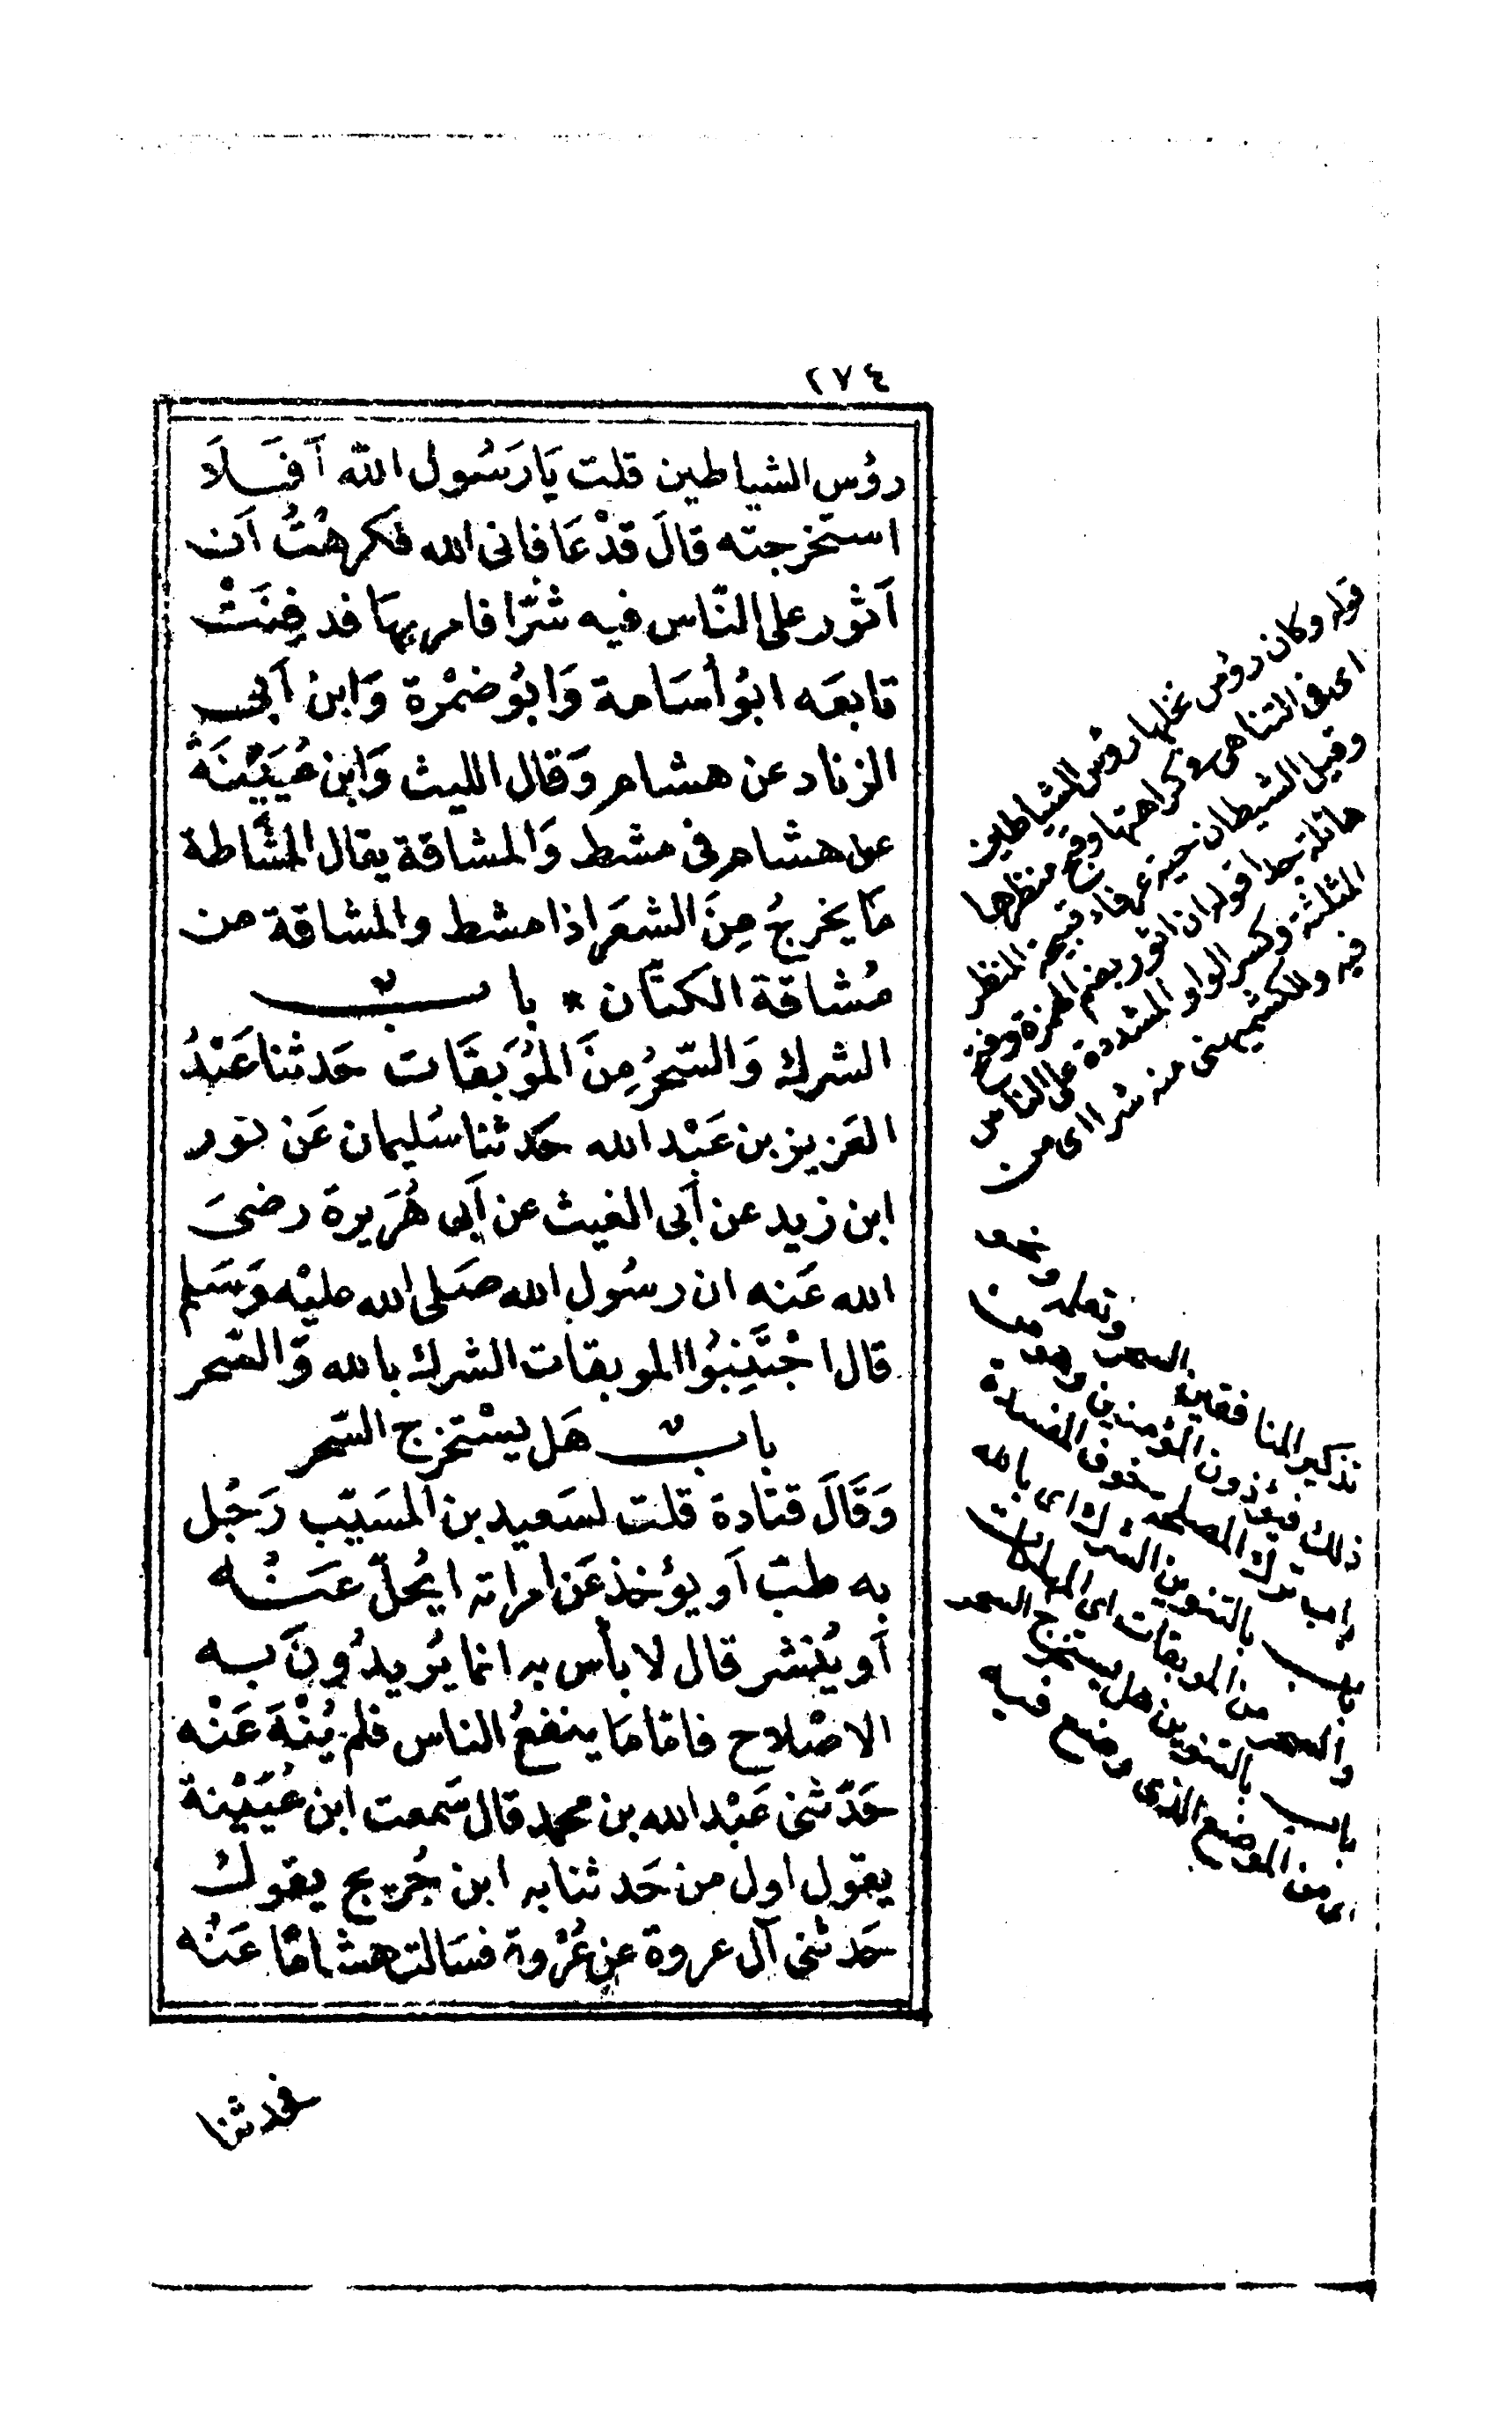 ٢٧٤
رؤس الشياطين قلت يَا رَسُول الله اَفَلاَ
استخرجته قالَ قدْ عَافانى الله فكرهْتُ اَن
اَثور على النّاس فيه شرّا فامر بهَا فدفِنَتْ
تابعَه ابُو أسَامة وَابُو ضمْرة وَابن اَبى
الزناد عن هشام وَقال الليث وَابن عُيَيْنَةَ
عن هشام فى مشط وَالمشاقة يقال المشَّاطة
مَا يخرجُ مِنَ الشعَر اذا مشط والمشاقة من
مُشاقة الكتّان * بابٌ
الشرك وَالسّحرُ مِنَ المُوبَقَات حَدثنا عَبْدُ
العَزيز بن عَبْد الله حَدثنا سُليمان عَن ثور
ابن زيد عن اَبى الغيث عن اَبى هُرَيرة رضىَ
الله عَنه ان رسُول الله صَلى الله عليْه وَسَلم
قال اجْتَنِبُوا الموبقات الشرك بالله وَالسّحر
بابٌ هَل يسْتخرج السّحر
وَقَالَ قتادة قلت لسَعيد بن المسَيّب رَجُل
به طبّ اَو يؤخذ عَن امراته ايُحلّ عَنْه
اَو يُنشر قال لا بأس به انما يُريدُونَ به
الاصْلاح فامّا مَا ينفعُ الناس فلم يُنْهَ عَنْه
حَدّثنى عَبْد الله بن محمد قال سَمعت ابن عُيَيْنة
يقول اول من حَدثنا به ابن جُريج يقول
حَدثنى آل عروة عن عُرْوة فسَالت هشامًا عَنْه
فحدثنا
قوله وكان رؤس نخلها رؤس الشياطين
اى فى التناهى فى كراهتها وقبح منظرها
وقيل الشيطان حية عرفاء قبيحة المنظر
هائلة جدا قوله ان اثور بضم الهمزة وفتح
المثلثة وكسر الواو المشددة على الناس
فيه وللكشميهنى منه شرا اى من
تذكير المنافقين السحر وتعلمه ونحو
ذلك فيؤذون المؤمنين وهو من
باب ترك المصلحة خوف المفسدة
باب بالتنوين الشرك اى بالله
والسحر من الموبقات اى المهلكات
باب بالتنوين هل يستخرج السحر
اى من الموضع الذى وضع فيه